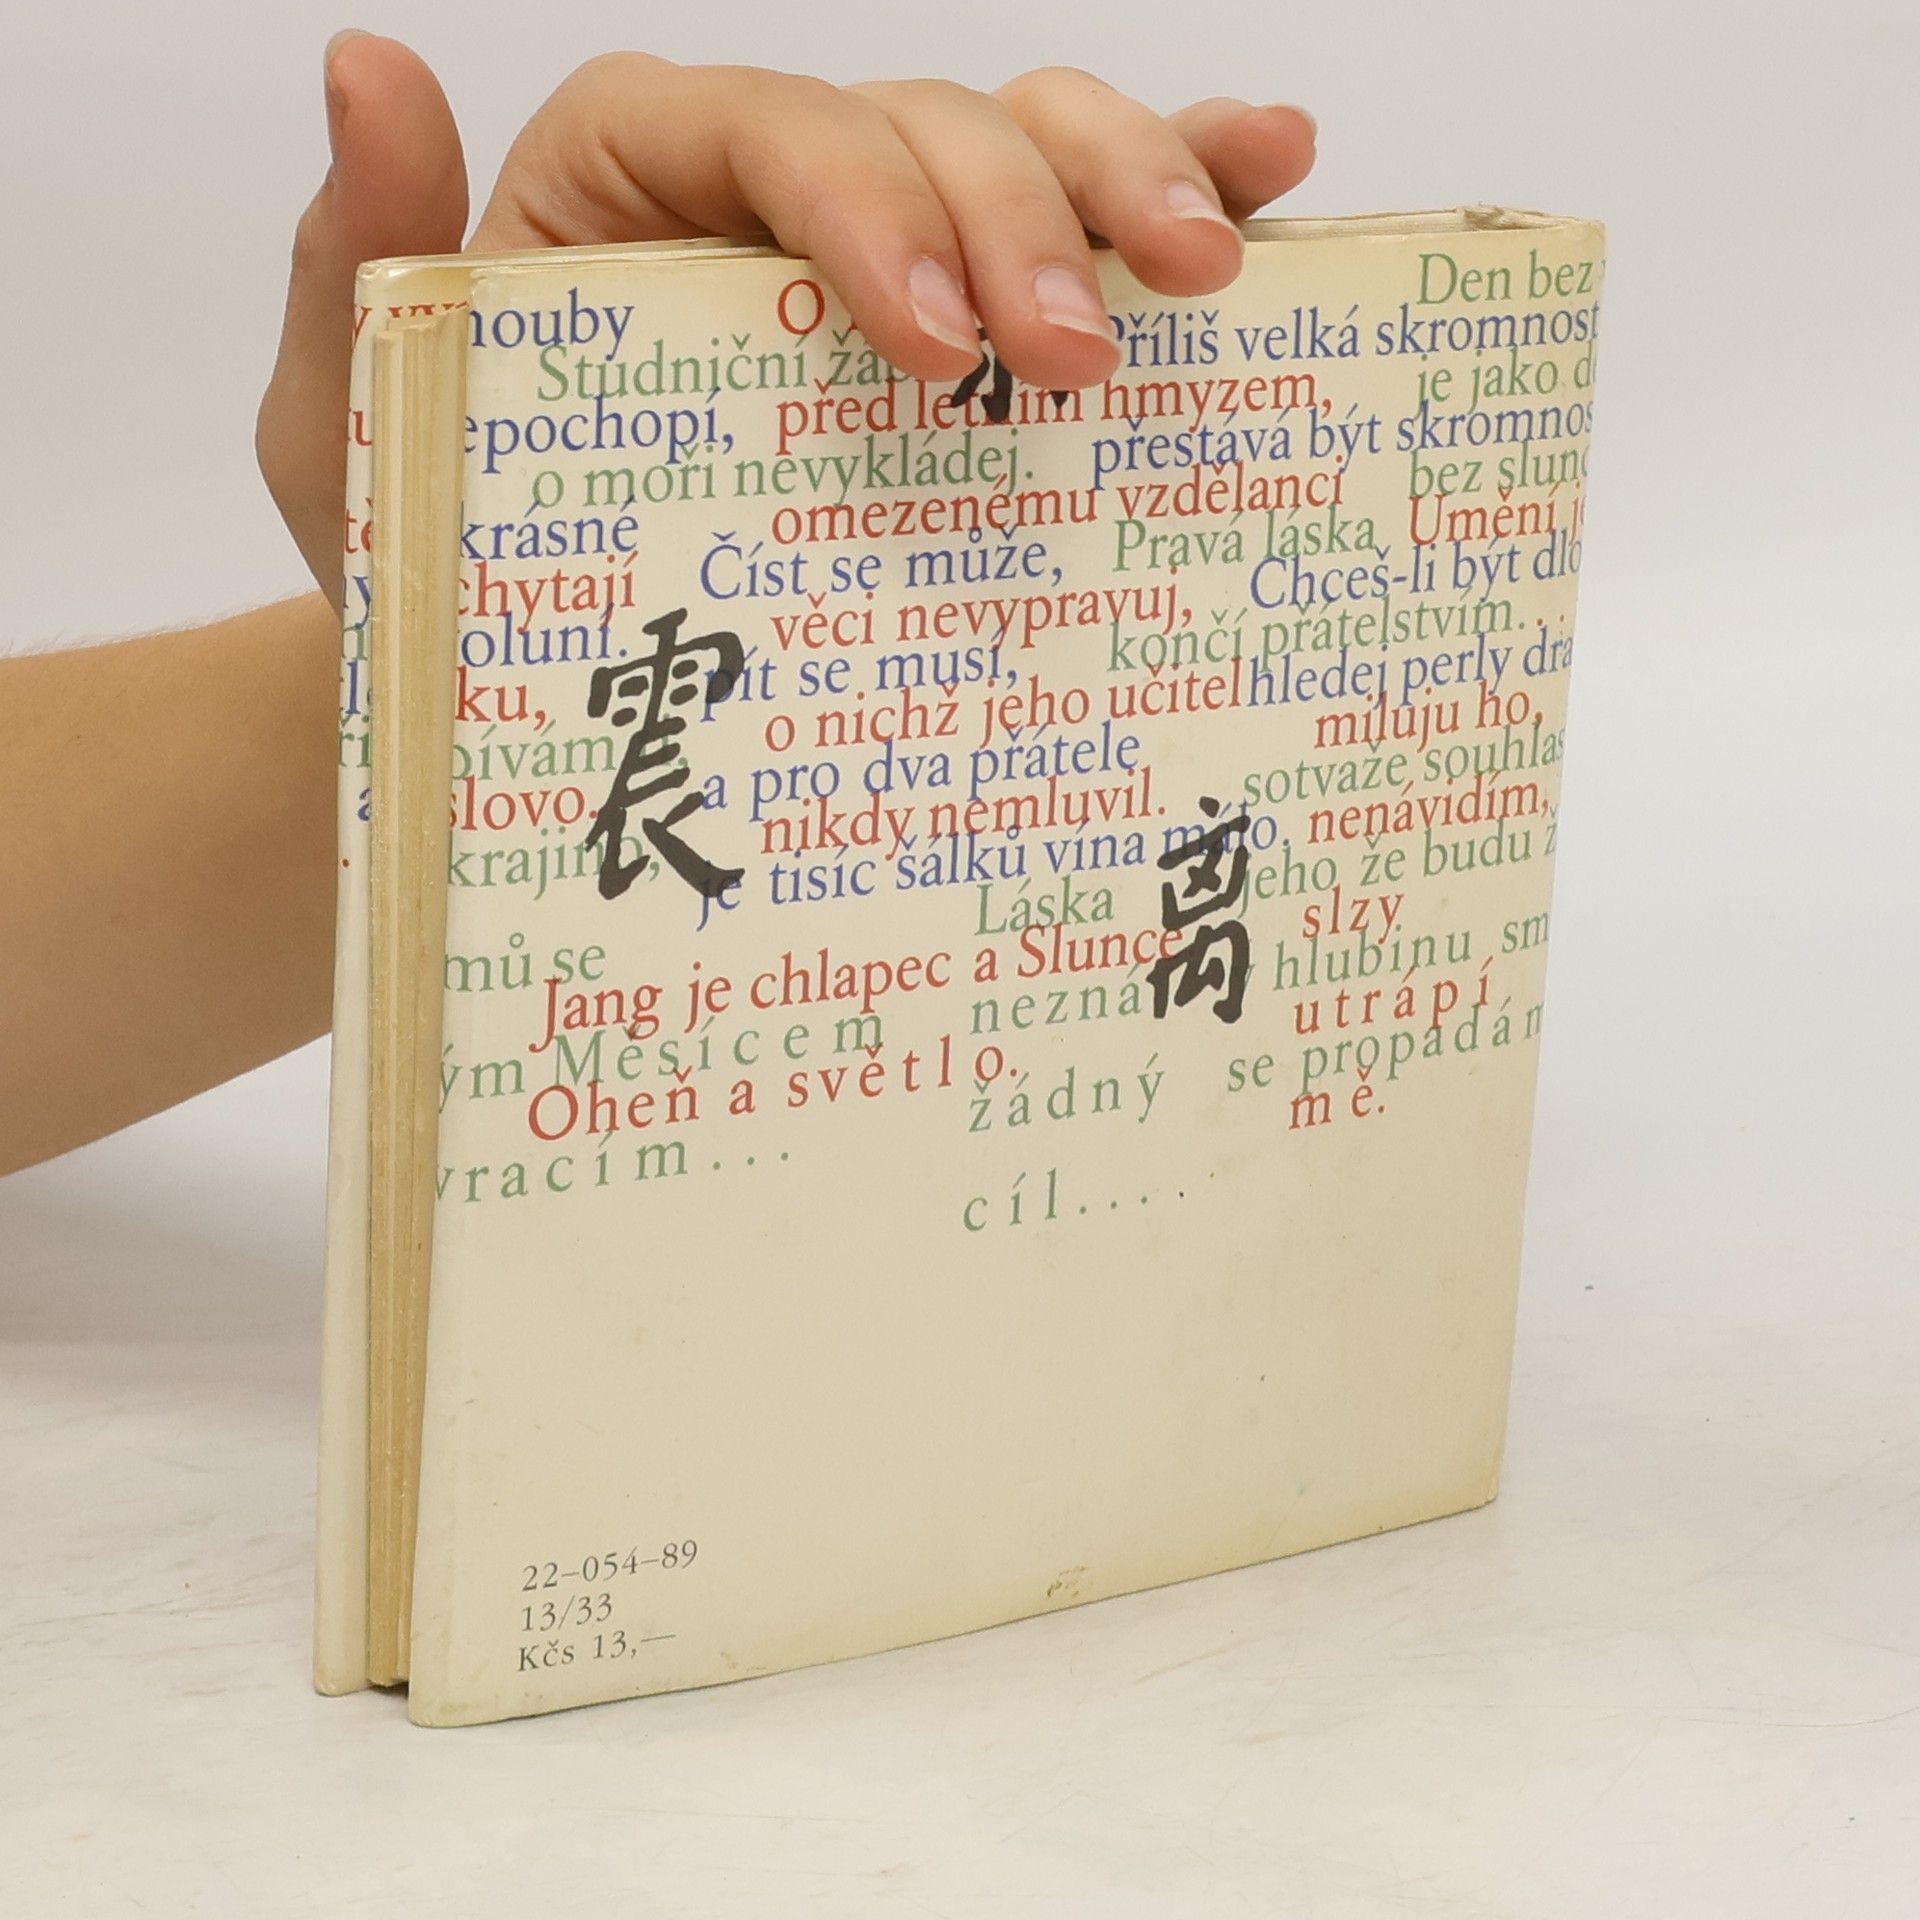 Den bez
houby
O
Příliš velká skromnost
Studniční
je jako
epochopí,
před letním hmyzem,
přestává být skromnos
o moři nevykládej.
bez slunc
krásné
omezenému vzdělanci
Umění je
Pravá láska
chytají
Číst se může,
Chceš-li být dlo
věci nevypravuj,
končí přátelstvím...
oluní.
震
pít se musí,
hledej perly dra
ku,
o nichž jeho učitel
miluju ho,
pívám
a pro dva přátele
sotvaže souhlas
slovo.
nikdy nemluvil.
nenávidím,
krajino,
je tisíc šálků vína málo.
jeho že budu ž
离
Láska
slzy
mů se
Jang je chlapec a Slunce
hlubinu sm
nezná
utrápí
ým Měsícem
se propadám
Oheň a světlo.
žádný
mě.
vracím...
cíl....
22–054–89
13/33
Kčs 13,—